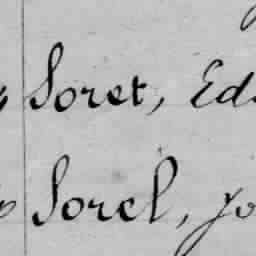 Soret, Ed
Sorel, Jo